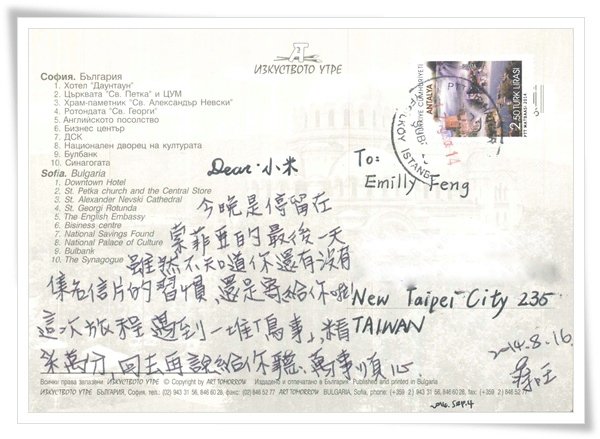 ИЗКУСТВОТО УТРЕ
София. България
1. Хотел "Даунтаун"
2. Църквата "Св. Петка" и ЦУМ
3. Храм-паметник "Св. Александър Невски"
4. Ротондата "Св. Георги"
5. Английското посолство
6. Бизнес център
7. ДСК
8. Национален дворец на културата
9. Булбанк
10. Синагогата
Sofia. Bulgaria
1. Downtown Hotel
2. St. Petka church and the Central Store
3. St. Alexander Nevski Cathedral
4. St. Georgi Rotunda
5. The English Embassy
6. Bisiness centre
7. National Savings Found
8. National Palace of Culture
9. Bulbank
10. The Synagogue
Dear 小米
今晚是停留在
索菲亞的最後一天
雖然不知道你還有沒有
集名信片的習慣,還是寄給你啦!
這次旅程遇到一堆「鳥事」,精
采萬分,回去再說給你聽.萬事順心.
2014.8.16.
To:
Emilly Feng
New Taipei City 235
TAIWAN
TÜRKİYE CUMHURİYETİ
ANTALYA
PTT
2.50 TÜRK LİRASI
PTT MATBAASI 2014
Всички права запазени ИЗКУСТВОТО УТРЕ © Copyright by ART TOMORROW Издадено и отпечатано в България. Published and printed in Bulgaria
ИЗКУСТВОТО УТРЕ БЪЛГАРИЯ, София, тел.: (02) 943 31 56, 846 60 28, факс: (02) 846 52 77 ART TOMORROW BULGARIA, Sofia, phone: (+359 2) 943 31 56, 846 60 28, fax: (+359 2) 846 52 77
2014. SEP.4